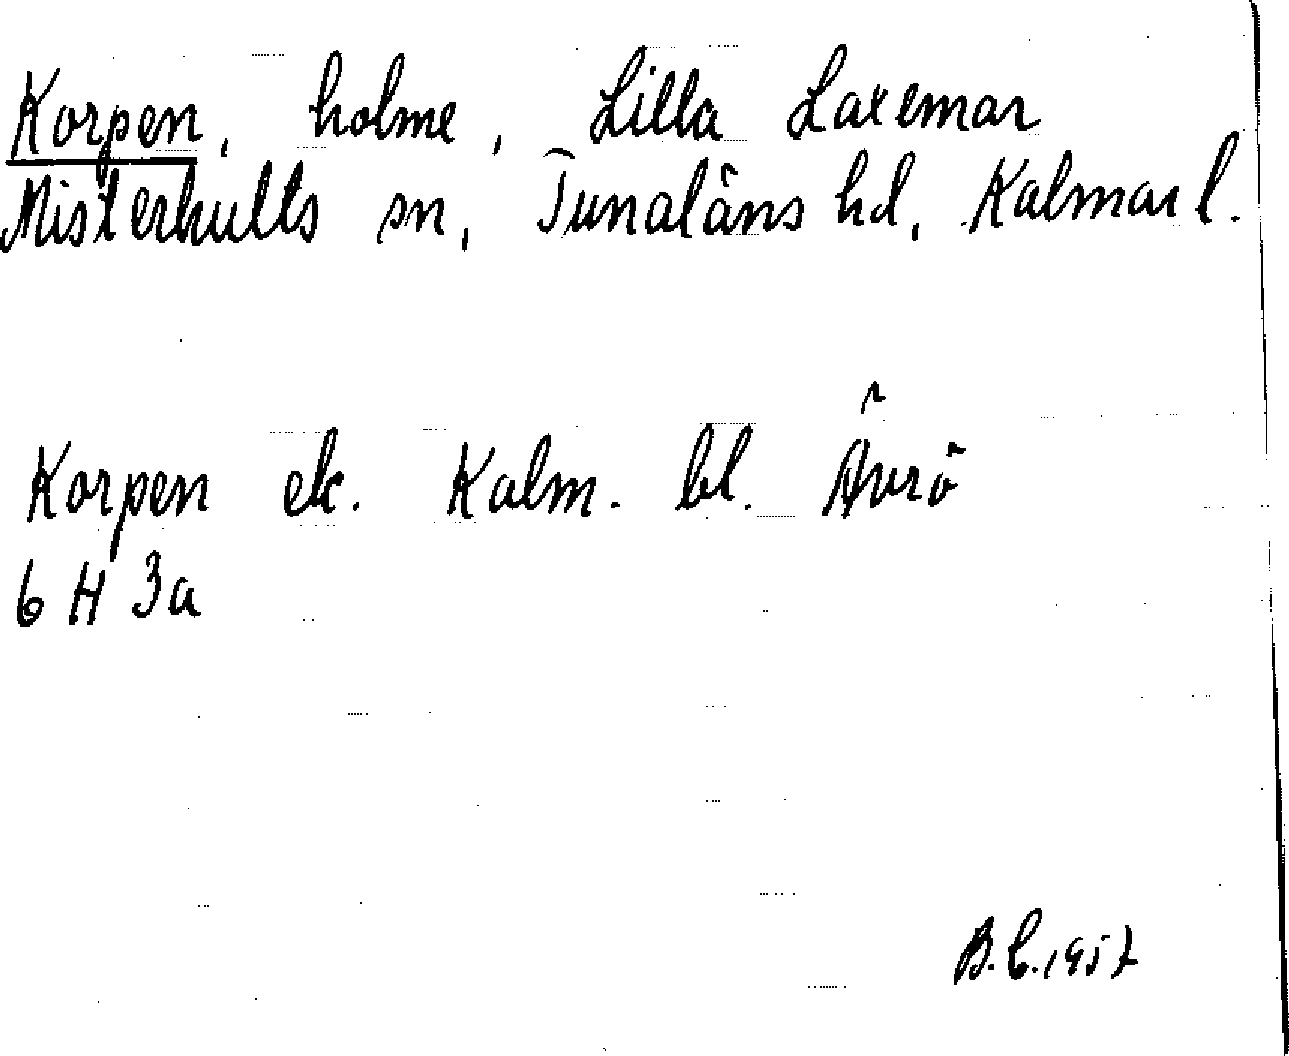 Korpen, holme, Lilla Laxemar
Misterhults sn, Tunaläns hd, Kalmar l.
Korpen ek. Kalm. bl. Ävrö
6 H 3a
B.C. 1957